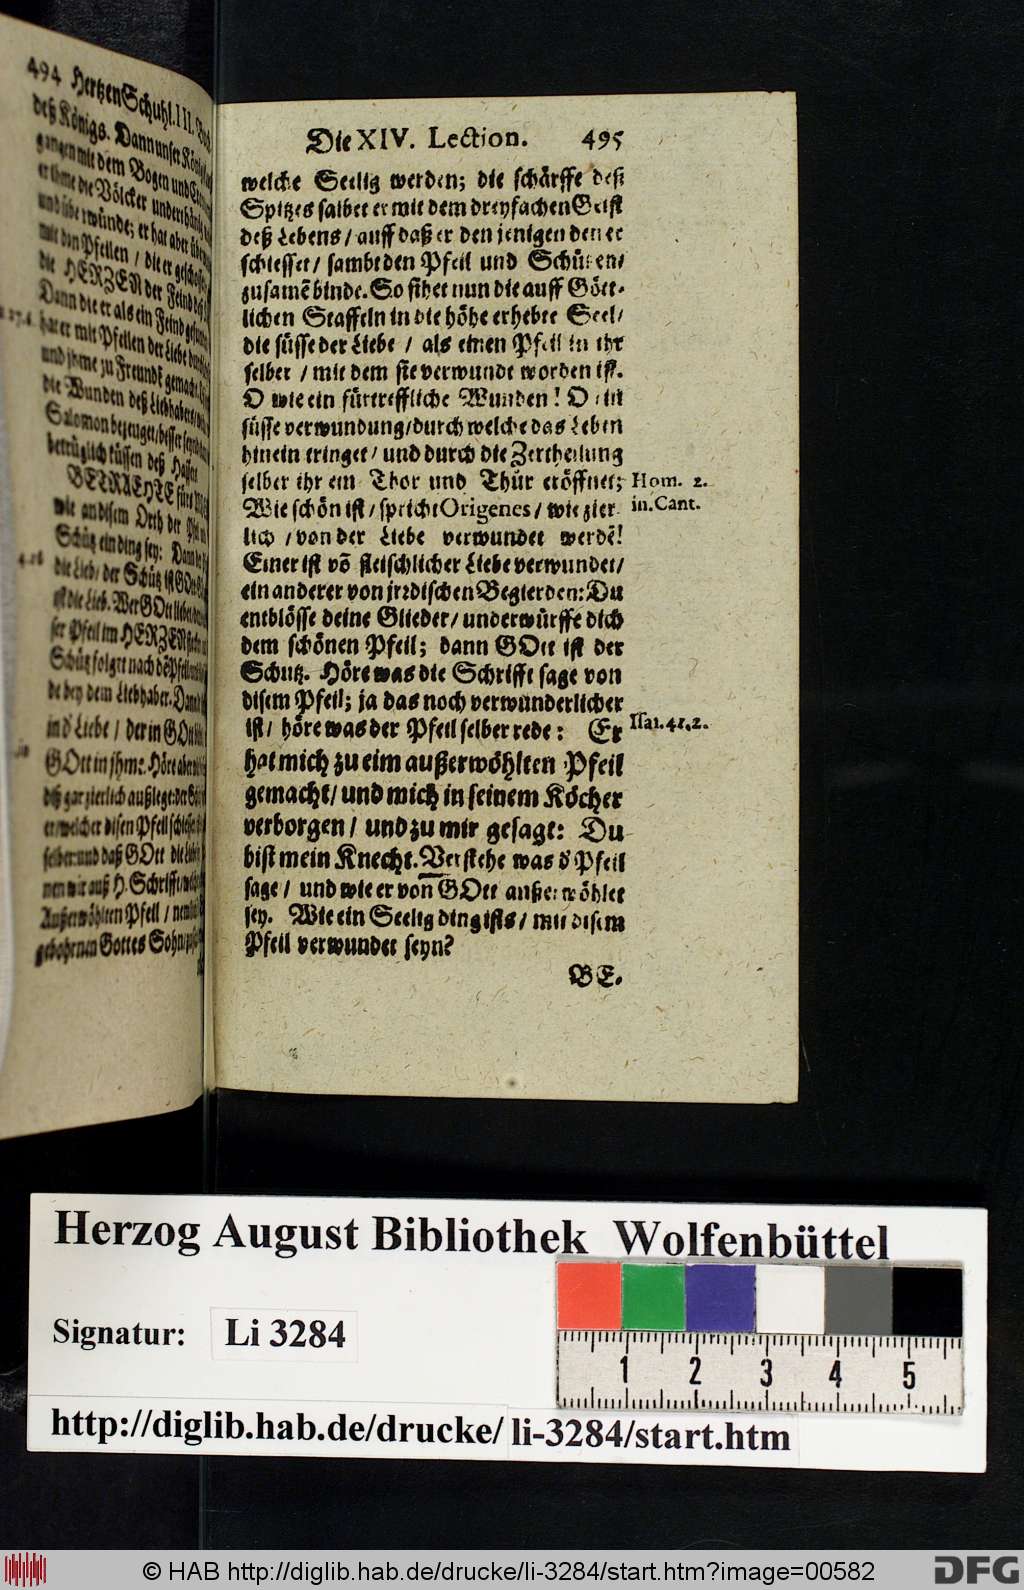 494 HertzenSchuhl. III.
deß Königs. Dann unser König
gangen mit dem Bogen und
er ihme die Völcker underthänig
und überwünde; er hat aber
mit den Pfeilen / die er geschossen
die HERZEN der Feind deß
Dann die er als ein Feind gefunden
hat er mit Pfeilen der Liebe
und ihme zu Freundē gemacht.
die Wunden deß Liebhabers /
Salomon bezeuget / besser seynd
betrüglich küssen deß Hasser
BETRACHTE fürs
wie an disem Orth der Pfeil
Schütz ein ding sey: Dann
4.16
die Lieb / der Schütz ist GOtt
ist die Lieb. Wer GOtt liebet
ser Pfeil im HERZEN
Schütz folget nach dē Pfeil
de bey dem Liebhaber. Dann
in d' Liebe / der in GOtt
GOtt in jhme. Höre aber
diß gar zierlich außlege: der
er / welcher disen Pfeil schiesse
selber und daß GOtt die Liebe
nen wir auß H. Schrifft /
Außerwöhlten Pfeil /
gebohrnen Gottes Sohn /
Die XIV. Lection. 495
welche Seelig werden; die schärffe deß
Spitzes salbet er mit dem dreyfachen Geist
deß Lebens / auff daß er den jenigen den er
schiesset / sambt den Pfeil und Schützen /
zusamē binde. So sihet nun die auff Gött-
lichen Staffeln in die höhe erhebte Seel /
die süsse der Liebe / als einen Pfeil in ihr
selber / mit dem sie verwundt worden ist.
O wie ein fürtreffliche Wunden! O ein
süsse verwundung / durch welche das Leben
hinein tringet / und durch die Zertheilung
selber ihr ein Thor und Thür eröffnet;
Hom. 2.
in. Cant.
Wie schön ist / spricht Origenes / wie zier-
lich / von der Liebe verwundet werdē!
Einer ist vō fleischlicher Liebe verwundet /
ein anderer von jrrdischen Begierden: Du
entblösse deine Glieder / underwürffe dich
dem schönen Pfeil; dann GOtt ist der
Schutz. Höre was die Schrifft sage von
disem Pfeil; ja das noch verwunderlicher
ist / höre was der Pfeil selber rede: Er
Isai. 41. 2.
hat mich zu eim außerwöhlten Pfeil
gemacht / und mich in seinem Köcher
verborgen / und zu mir gesagt: Du
bist mein Knecht. Verstehe was d' Pfeil
sage / und wie er von GOtt außerwöhlet
sey. Wie ein Seelig ding ists / mit disem
Pfeil verwundet seyn?
BE.
Herzog August Bibliothek Wolfenbüttel
Signatur: Li 3284
1 2 3 4 5
http://diglib.hab.de/drucke/li-3284/start.htm
© HAB http://diglib.hab.de/drucke/li-3284/start.htm?image=00582
DFG